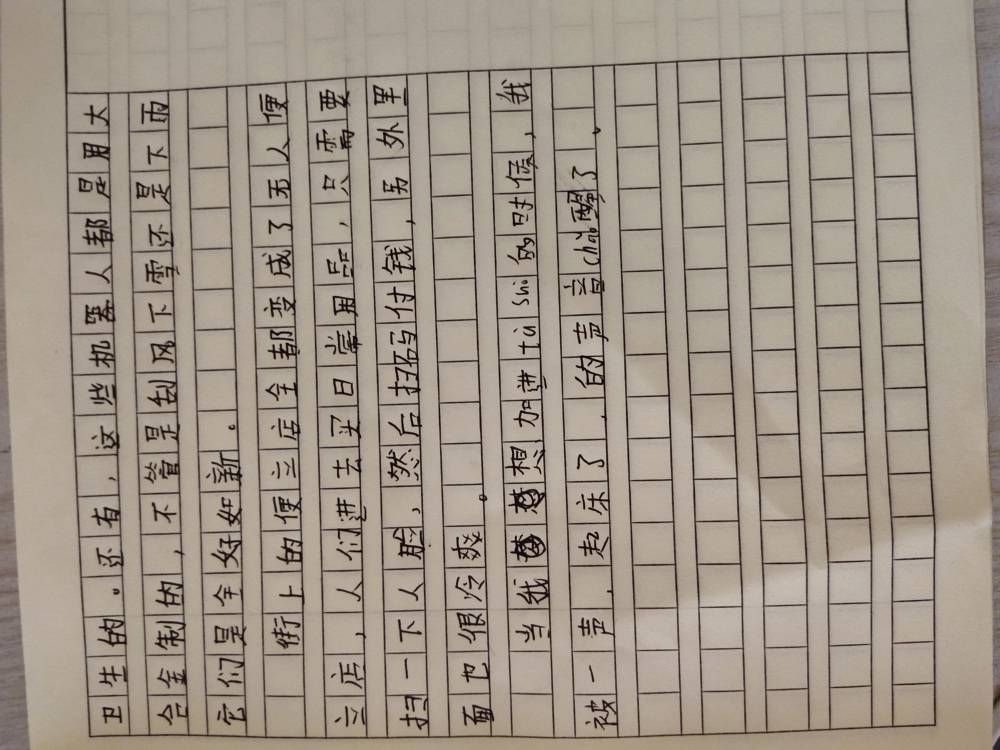 卫生的。还有，这些机器人都是用太
合金制的，不管是刮风下雪还是下雨
它们是全好如新。
街上的便立店全都变成了无人便
立店，人们进去买日常用品，只需要
扫一下人脸，然后扫码付钱，另外里
面也很冷爽。
当我想加进tàsuì的时候，我
被一声，起床了，的声音chǎo醒了。